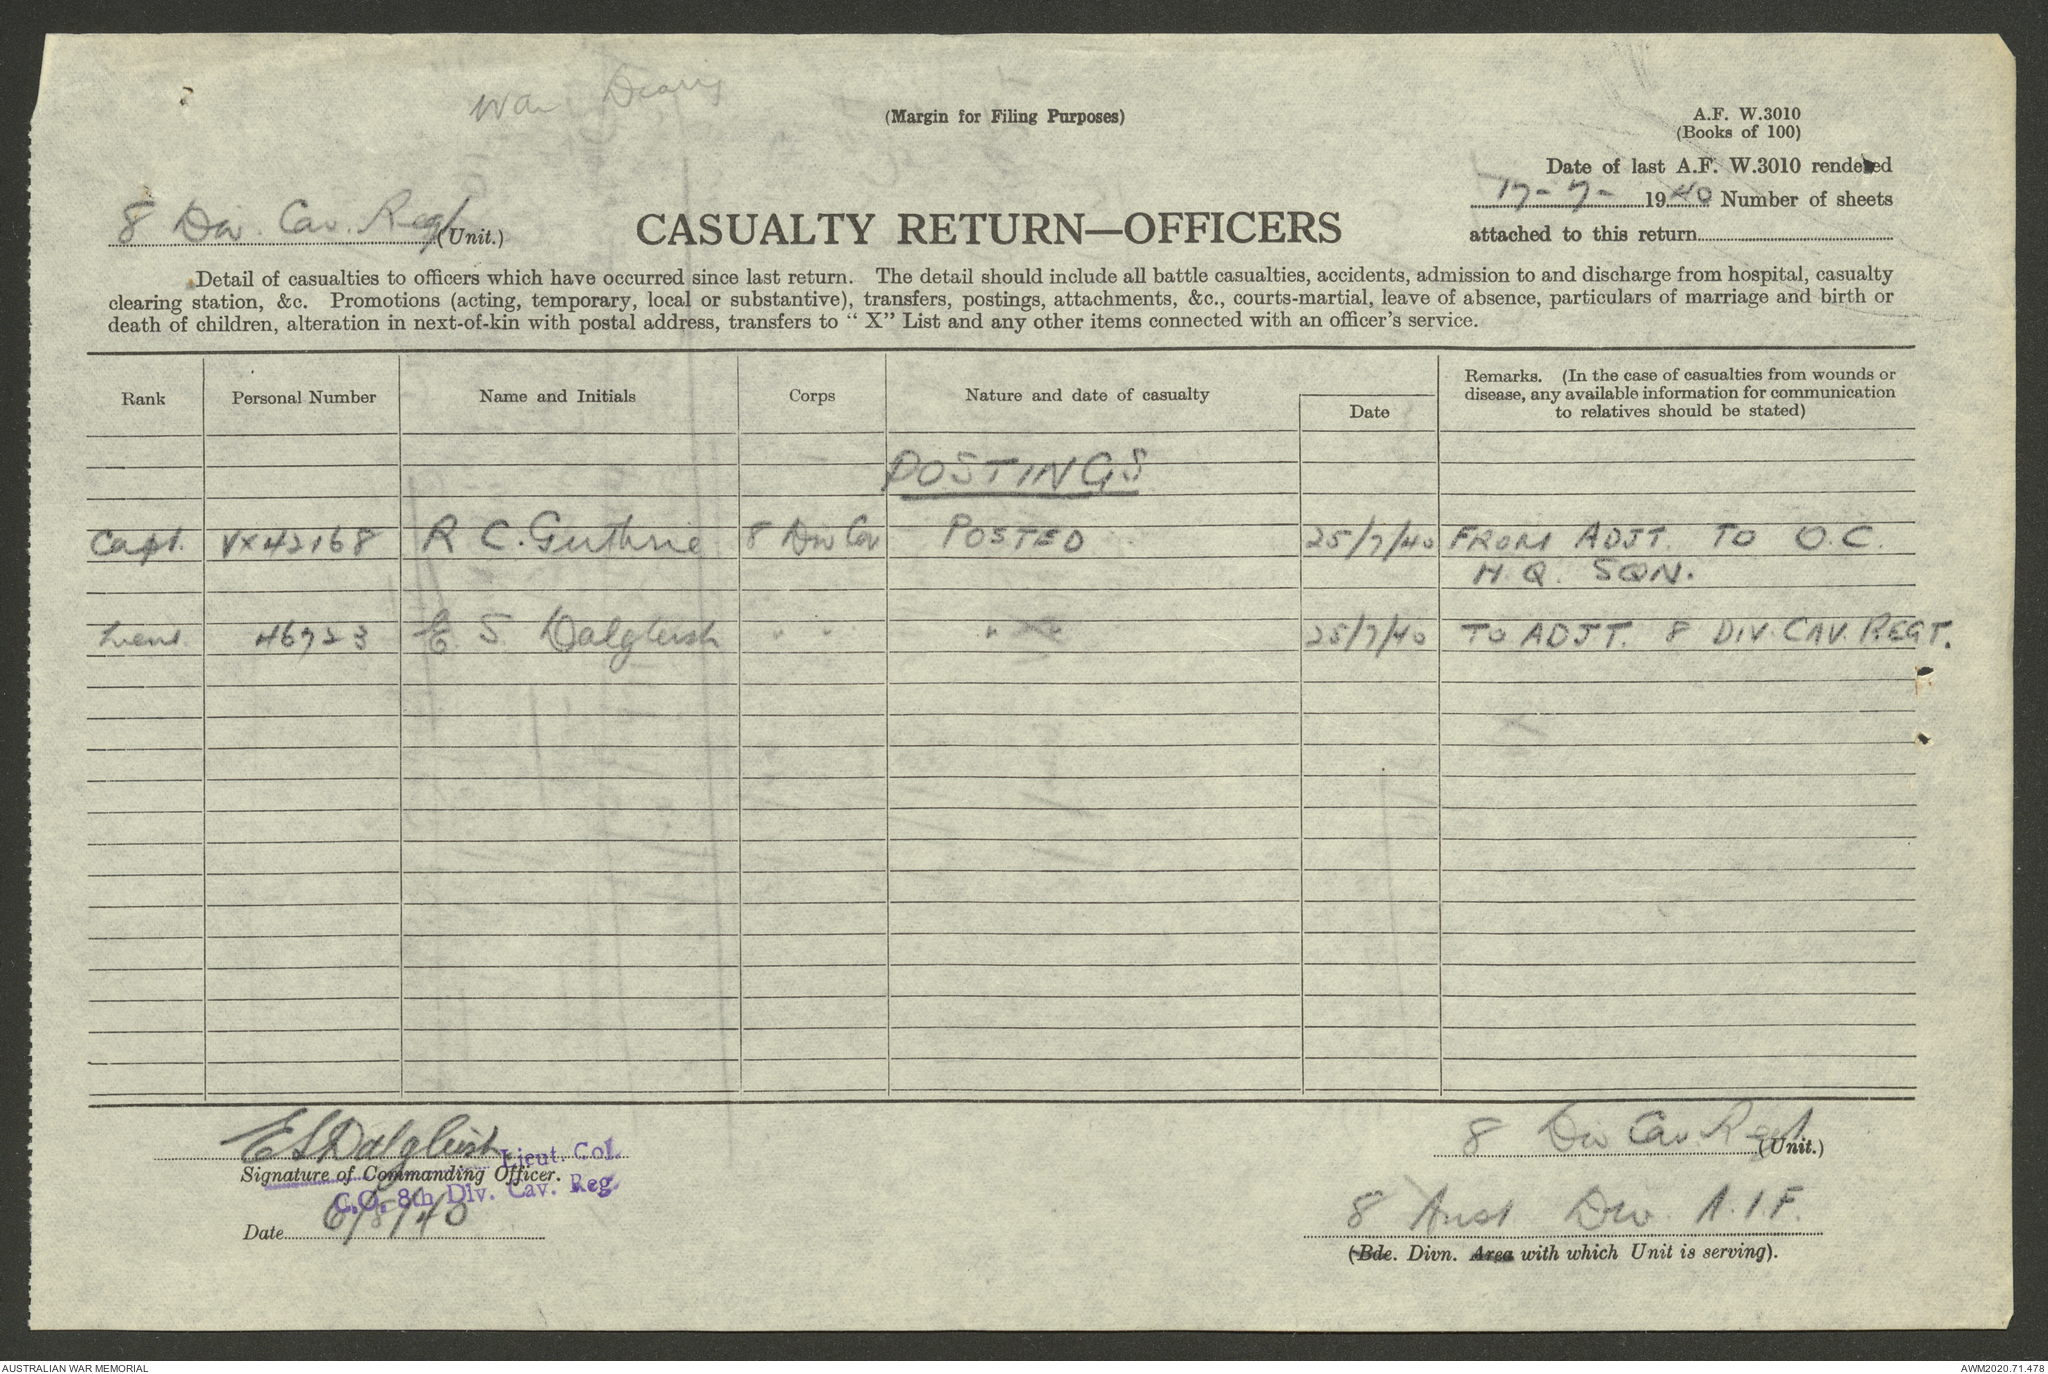 War Diary
(Margin for Filing Purposes)
A.F. W.3010
(Books of 100)
Date of last A.F. W.3010 rendered
17-7-1940 Number of sheets
attached to this return
8 Div. Cav. Regt (Unit.)
CASUALTY RETURN—OFFICERS
Detail of casualties to officers which have occurred since last return. The detail should include all battle casualties, accidents, admission to and discharge from hospital, casualty
clearing station, &c. Promotions (acting, temporary, local or substantive), transfers, postings, attachments, &c., courts-martial, leave of absence, particulars of marriage and birth or
death of children, alteration in next-of-kin with postal address, transfers to "X" List and any other items connected with an officer's service.
Rank Personal Number Name and Initials Corps Nature and date of casualty Date Remarks. (In the case of casualties from wounds or
disease, any available information for communication
to relatives should be stated)
POSTINGS
Capt. VX42168 R C. Guthrie 8 Div Cav POSTED 25/7/40 FROM ADJT. TO O.C.
H.Q. SQN.
Lieut. 46723 E. S Dalgleish " " " 25/7/40 TO ADJT. 8 DIV. CAV. REGT.
ESDalgleish Lieut. Col.
Signature of Commanding Officer.
C.O. 8th Div. Cav. Reg.
Date 6/8/40
8 Div Cav Regt (Unit.)
8 Aust Div. A.I.F.
(Bde. Divn. Area with which Unit is serving).
AUSTRALIAN WAR MEMORIAL
AWM2020.71.478